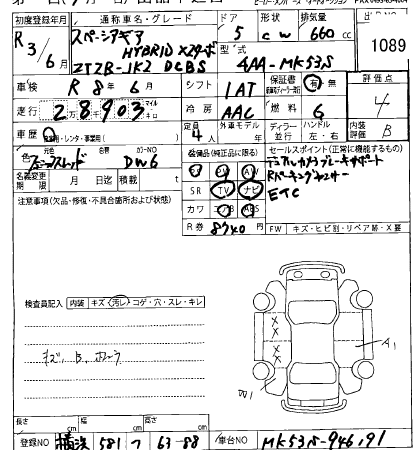 初度登録年月 通称車名・グレード ドア 形状 排気量
R3年/6月 スペーシアギア HYBRID XZターボ 5 CW 660cc 1089
ZTZR-JK2 DCBS 型式 4AA-MK53S
車検 R 8年 6月 シフト 1AT 保証書 有・無 評価点 4
走行 28903 マイル キロ 冷房 AAC 燃料 G
車歴 自家用・レンタ・事業用( ) 定員 4人 外車モデル 年 ディーラー・並行 ハンドル 左・右 内装評価 B
色 元色 カラーNO DW6 装備品(純正品に限る) セールスポイント(正常に機能するもの)
デュアルカメラブレーキサポート
Rパーキングセンサー
ETC
名義変更期限 月 日迄 積載 t SR TV ナビ
注意事項(欠品・修復・不具合箇所および状態) カワ エアB ABS
R券 8740円 FW キズ・ヒビ割・リペア跡・X要
検査員記入 内装 キズ・汚レ・コゲ・穴・スレ・キレ
キズ、B、
A1
W1
長さ cm 幅 cm 高さ cm
登録NO 横浜 581 つ 63-88 車台NO MK53S-946191